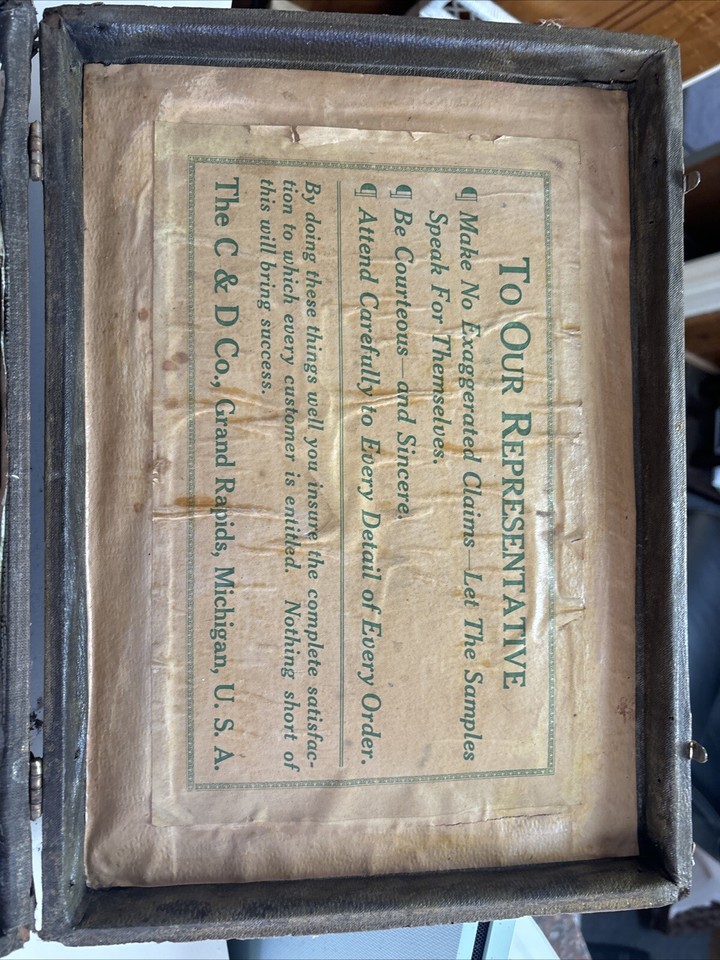 To Our Representative
¶ Make No Exaggerated Claims—Let The Samples
Speak For Themselves.
¶ Be Courteous—and Sincere.
¶ Attend Carefully to Every Detail of Every Order.
By doing these things well you insure the complete satisfac-
tion to which every customer is entitled. Nothing short of
this will bring success.
The C & D Co., Grand Rapids, Michigan, U. S. A.